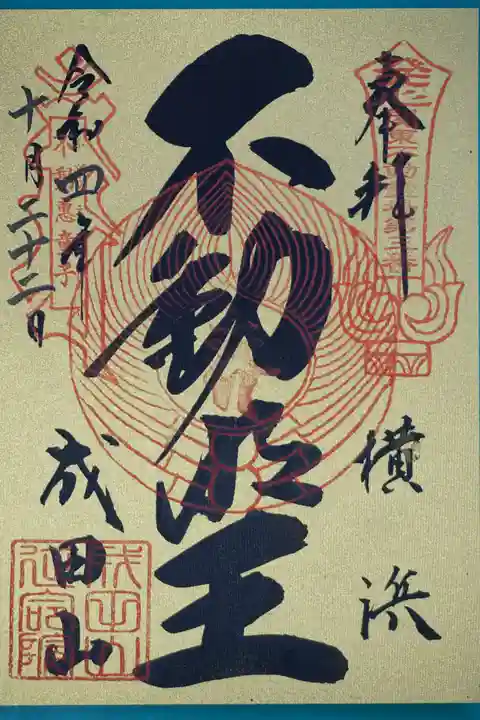 奉拝
横浜
不動明王
令和四年
十月二十三日
成田山